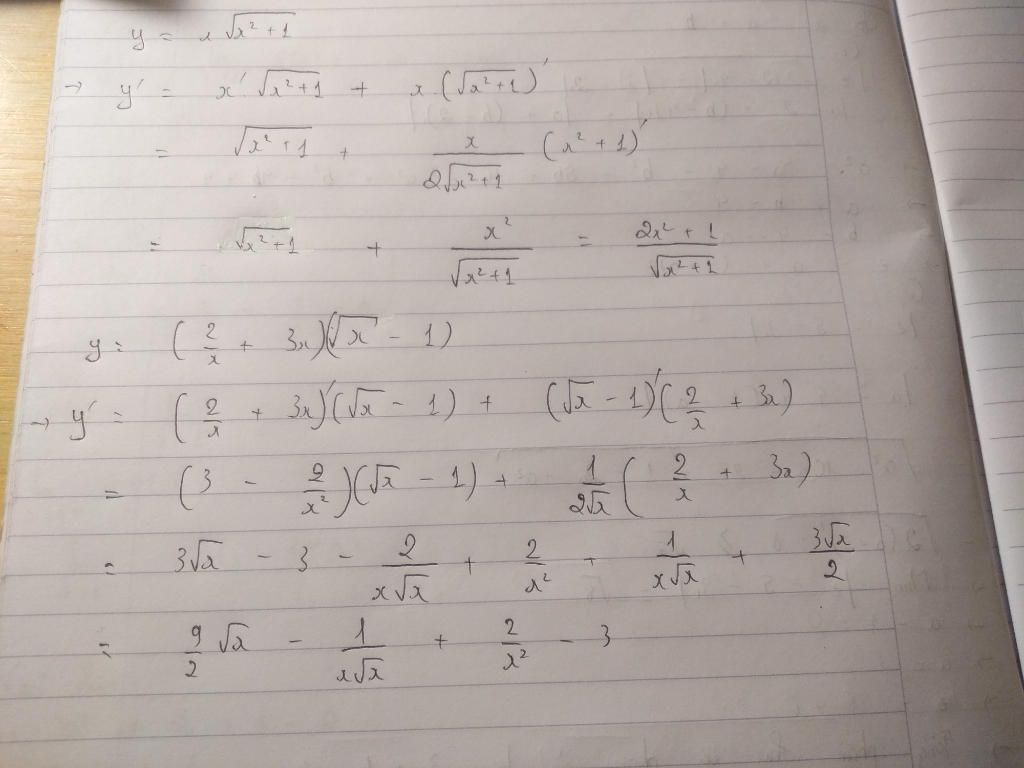 y = x √(x² + 1)
→ y' = x' √(x² + 1) + x (√(x² + 1))'
= √(x² + 1) + x / (2√(x² + 1)) (x² + 1)'
= √(x² + 1) + x² / √(x² + 1) = (2x² + 1) / √(x² + 1)
y = (2/x + 3x)(√x − 1)
→ y' = (2/x + 3x)'(√x − 1) + (√x − 1)'(2/x + 3x)
= (3 − 2/x²)(√x − 1) + 1/(2√x) (2/x + 3x)
= 3√x − 3 − 2/(x√x) + 2/x² + 1/(x√x) + 3√x/2
= 9/2 √x − 1/(x√x) + 2/x² − 3